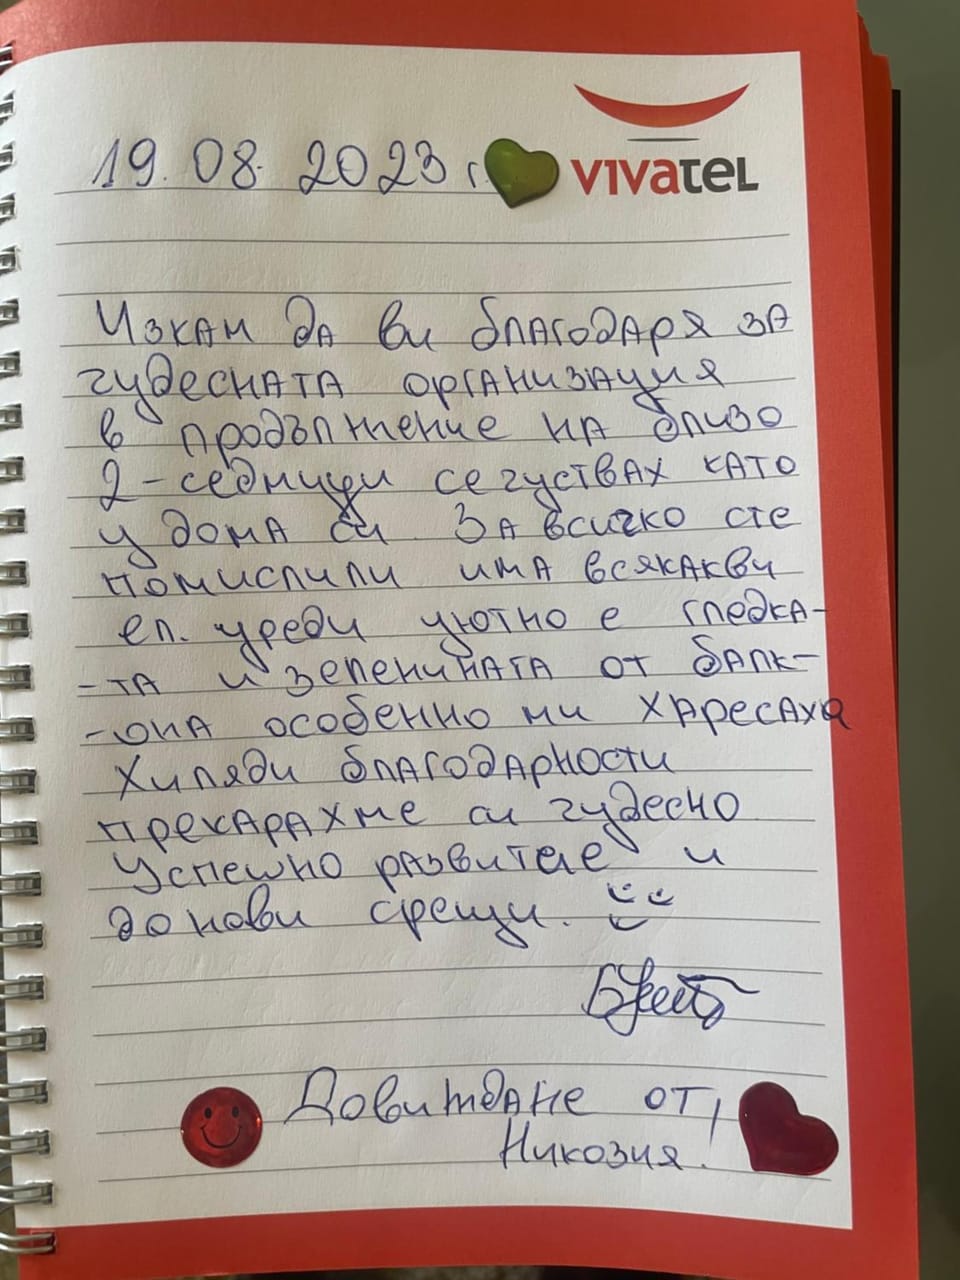 19.08.2023 г.
VIVATEL
Изкам да ви благодаря за
чудесната организация
в продължение на близо
2-седмици се чуствах като
у дома си. За всичко сте
помислили има всякакви
ел. уреди уютно е гледка-
-та и зеленината от балк-
-она особенно ми харесаха
Хиляди благодарности
прекарахме си чудесно
Успешно развитие и
до нови срещи.
Довиждане от
Никозия!